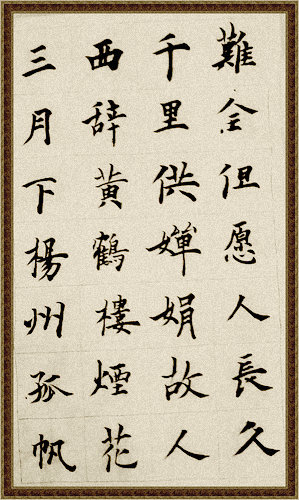 難全但愿人長久
千里供婵娟故人
西辞黄鶴樓煙花
三月下楊州孤帆